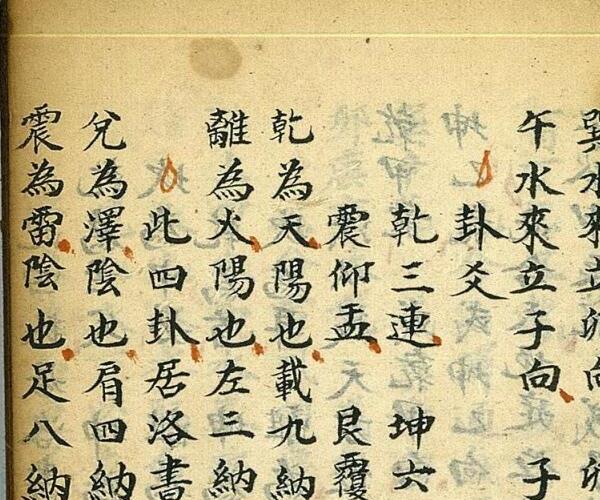 巽水來立卯向
午水來立子向 子
卦爻
乾三連 坤六
震仰盂 艮覆
乾為天陽也載九納
離為火陽也左三納
此四卦居洛書
兌為澤陰也肩四納
震為雷陰也足八納